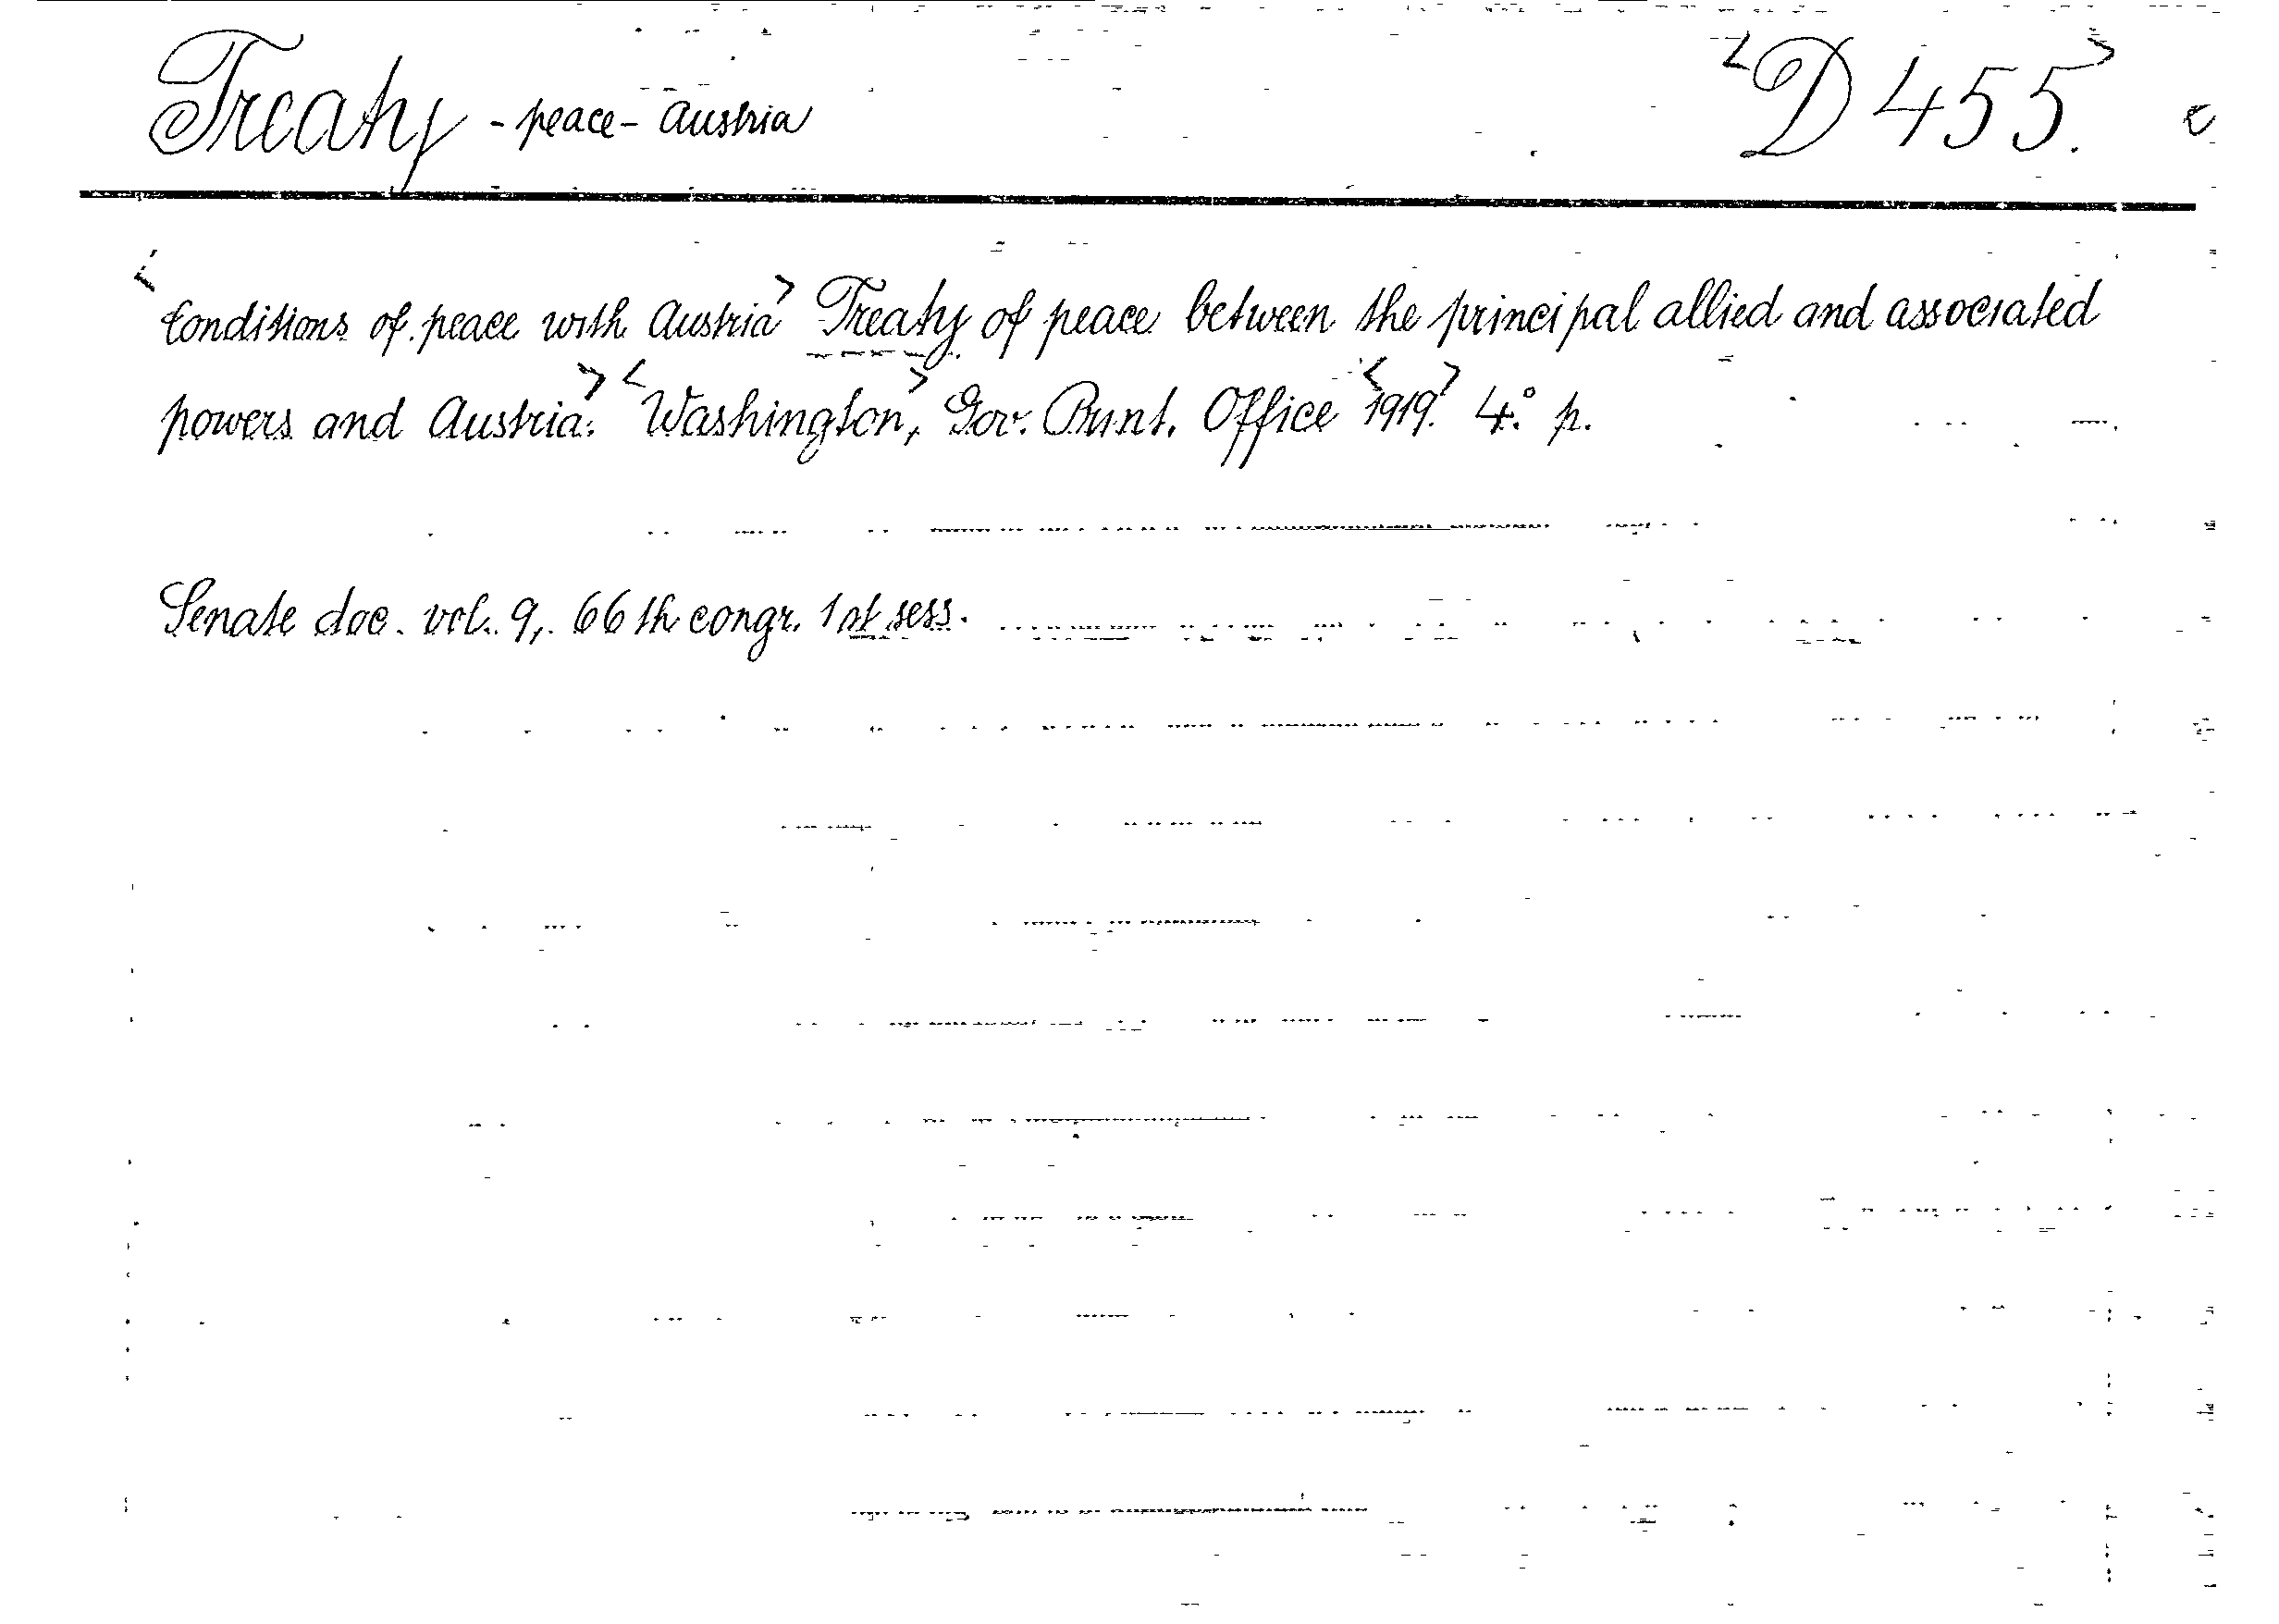 Treaty - peace - Austria <D 455.> c
<Conditions of peace with Austria> Treaty of peace between the principal allied and associated
powers and Austria.> <Washington,> Gov. Print. Office <1919.> 4.° p.
Senate doc. vol. 9, 66 th congr. 1 st sess.